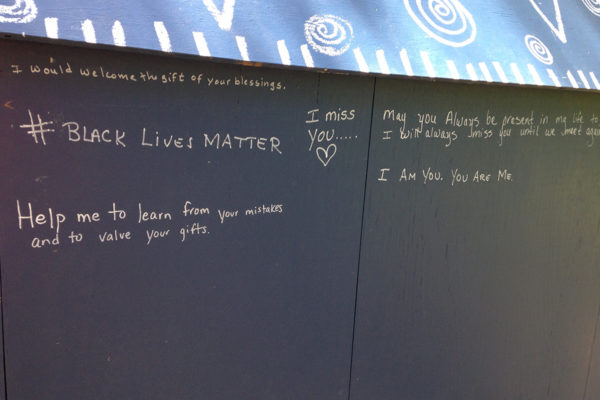 I would welcome the gift of your blessings.
# BLACK LIVES MATTER
I miss
YOU.....
Help me to learn from your mistakes
and to value your gifts.
May you Always be present in my life to
I will always miss you until we meet again
I AM YOU. YOU ARE ME.